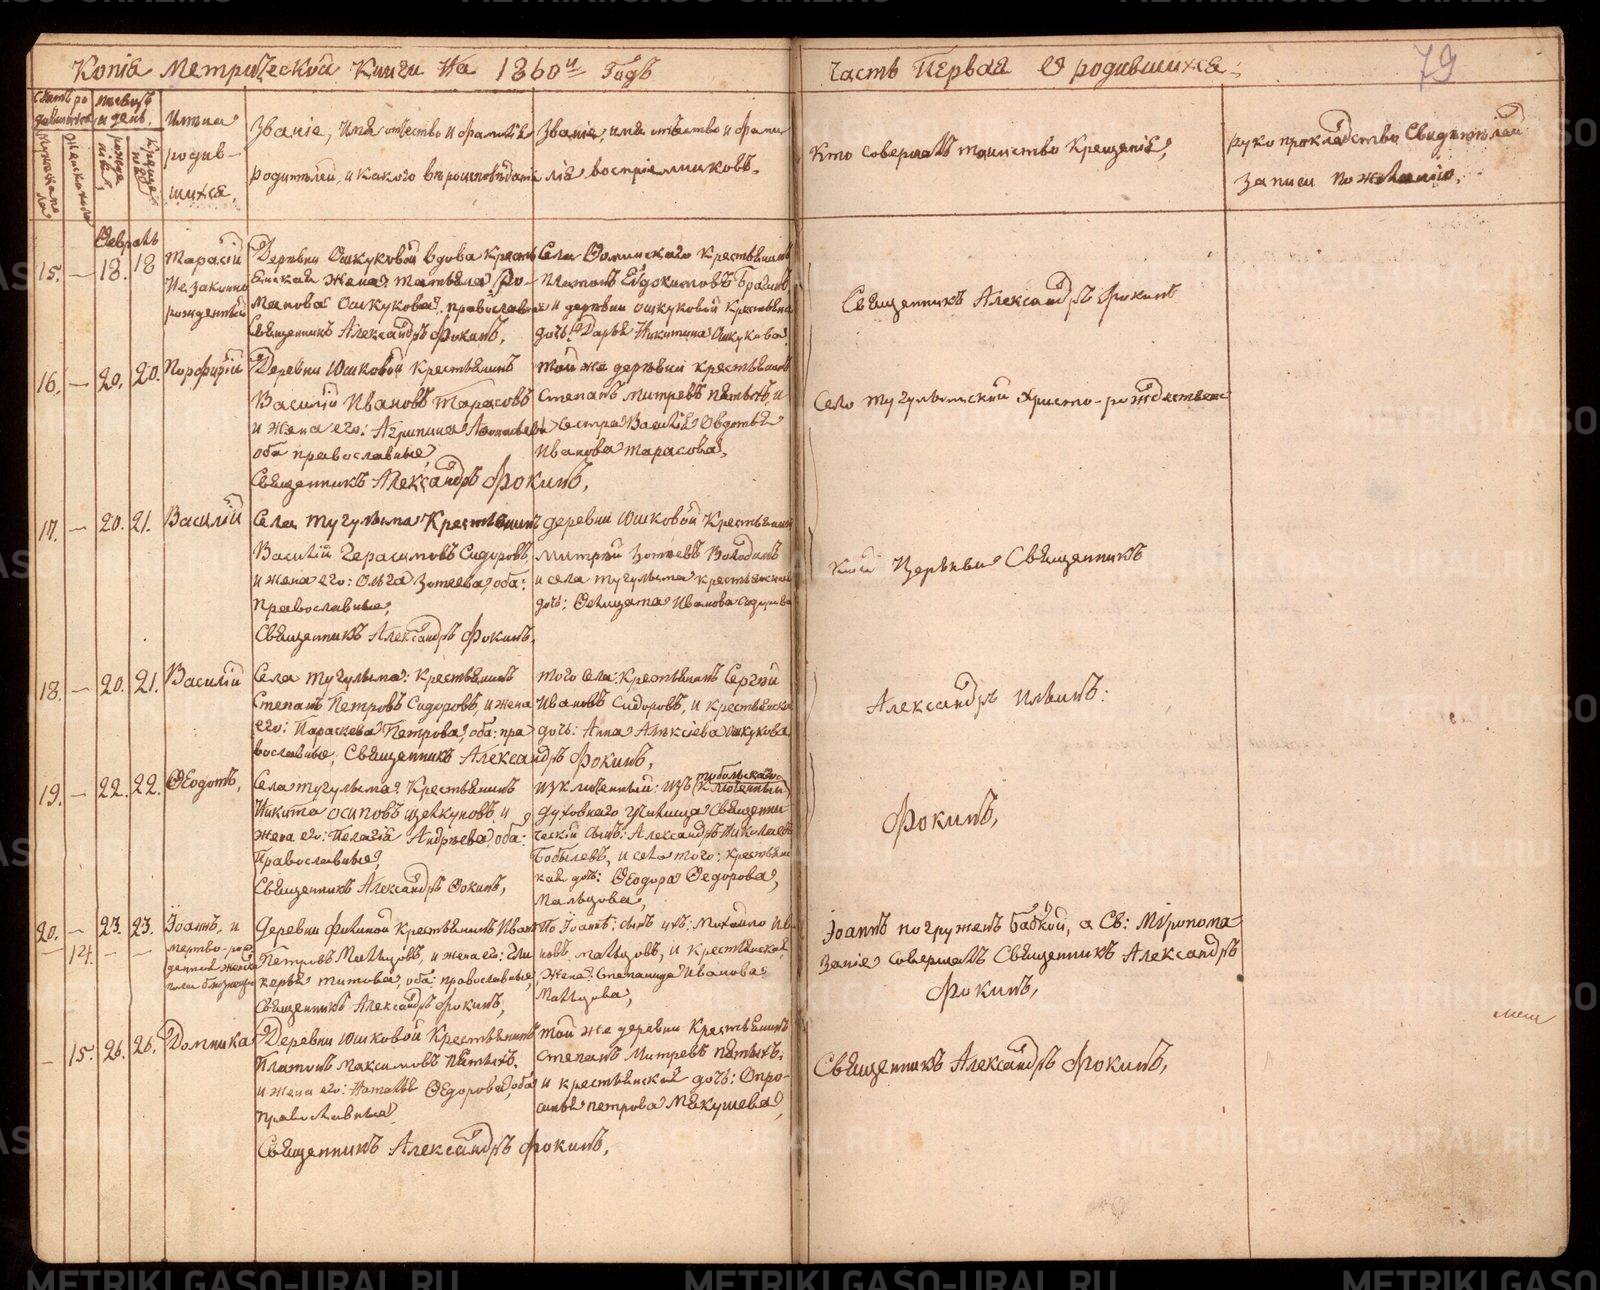 Копія Метрической Книги На 1860й Годъ
Часть Первая О родившихся:
79
Счетъ ро
дившихся
мѣсяцъ
и день.
Имена
родив-
шихся.
Званіе, Имя отчество и фамилія
родителей, и какого вѣроисповѣданія
Званіе, имя отчество и фами
лія воспріемниковъ.
Кто совершалъ таинство Крещенія,
рукоприкладство Свидѣтелей
записи по желанію,
Февраль
15. — 18. 18
Тарасій
Незаконно
рожденный
Деревни Ошкуковой вдова Кресть
янская жена: Татьяна Ро-
манова Ошкукова, православная
Священникъ Александръ Фокинъ,
Села Фоминскаго Крестьянинъ
Платонъ Евдокимовъ Брагинъ
и деревни Ошкуковой Крестьянск
дочь: Дарья Никитина Ошкукова.
Священникъ Александръ Фокинъ
16. — 20. 20.
Порфирій
Деревни Юшковой Крестьянинъ
Василій Ивановъ Тарасовъ
и жена его: Агрипина
оба православные,
Священникъ Александръ Фокинъ,
той же деревни крестьянинъ
Степанъ Митревъ Пятыхъ, и
сестра Василія Овдотья
Иванова Тарасова,
Село Тугулымской Христо-рождественс
17. — 20. 21.
Василій
Села Тугулыма Крестьянинъ
Василій Герасимовъ Сидоровъ,
и жена его: Ольга Зотеева, оба:
Православные,
Священникъ Александръ Фокинъ,
деревни Юшковой Крестьянинъ
Митрій Зотеевъ Володинъ
и села Тугулыма крестьянская
дочь: Иванова Сидорова
кой Церкви Священникъ
18. — 20. 21.
Василій
Села Тугулыма: Крестьянинъ
Степанъ Петровъ Сидоровъ, и жена
его: Параскева Петрова, оба: пра
вославные, Священникъ Александръ Фокинъ,
того села Крестьянинъ Сергій
Ивановъ Сидоровъ, и крестьянска
дочь: Анна Алексіева Ошкукова
Александръ
19. — 22. 22.
Ѳеодотъ,
Села Тугулыма: Крестьянинъ
Никита Осиповъ Щелкуновъ, и
жена его: Пелагія Андреева, оба:
Православные,
Священникъ Александръ Фокинъ,
Исключенный: изъ тобольскаго
духовнаго Училища Священни-
ческій сынъ: Александръ Николаевъ
Бобылевъ, и села того: крестьянс
кая дочь: Ѳеодора Ѳедорова,
Мальцова,
Фокинъ,
20. — 23. 23.
— 14. — —
Іоаннъ, и
мертво-рож
денная женск
Деревни Филиной Крестьянинъ Иванъ
Петровъ Мальцовъ, и жена его: Гли
керья Титова, оба: православные,
Священникъ Александръ Фокинъ,
По Іоаннѣ: сынъ ихъ: Михайло Ив
новъ Мальцовъ, и Крестьянская
жена: Степанида Иванова
Мальцова,
Іоаннъ погруженъ бабкой, а Св: Мѵропома-
заніе совершалъ Священникъ Александръ
Фокинъ,
— 15. 26. 26.
Домника
Деревни Юшковой Крестьянинъ
Платонъ Максимовъ Пятыхъ,
и жена его: Наталья Ѳедорова, оба
православные
Священникъ Александръ Фокинъ,
той же деревни Крестьянинъ
Степанъ Митревъ Пятыхъ,
и крестьянская дочь: Опро-
синья Петрова Макушева,
Священникъ Александръ Фокинъ,
METRIKI.GASO-URAL.RU